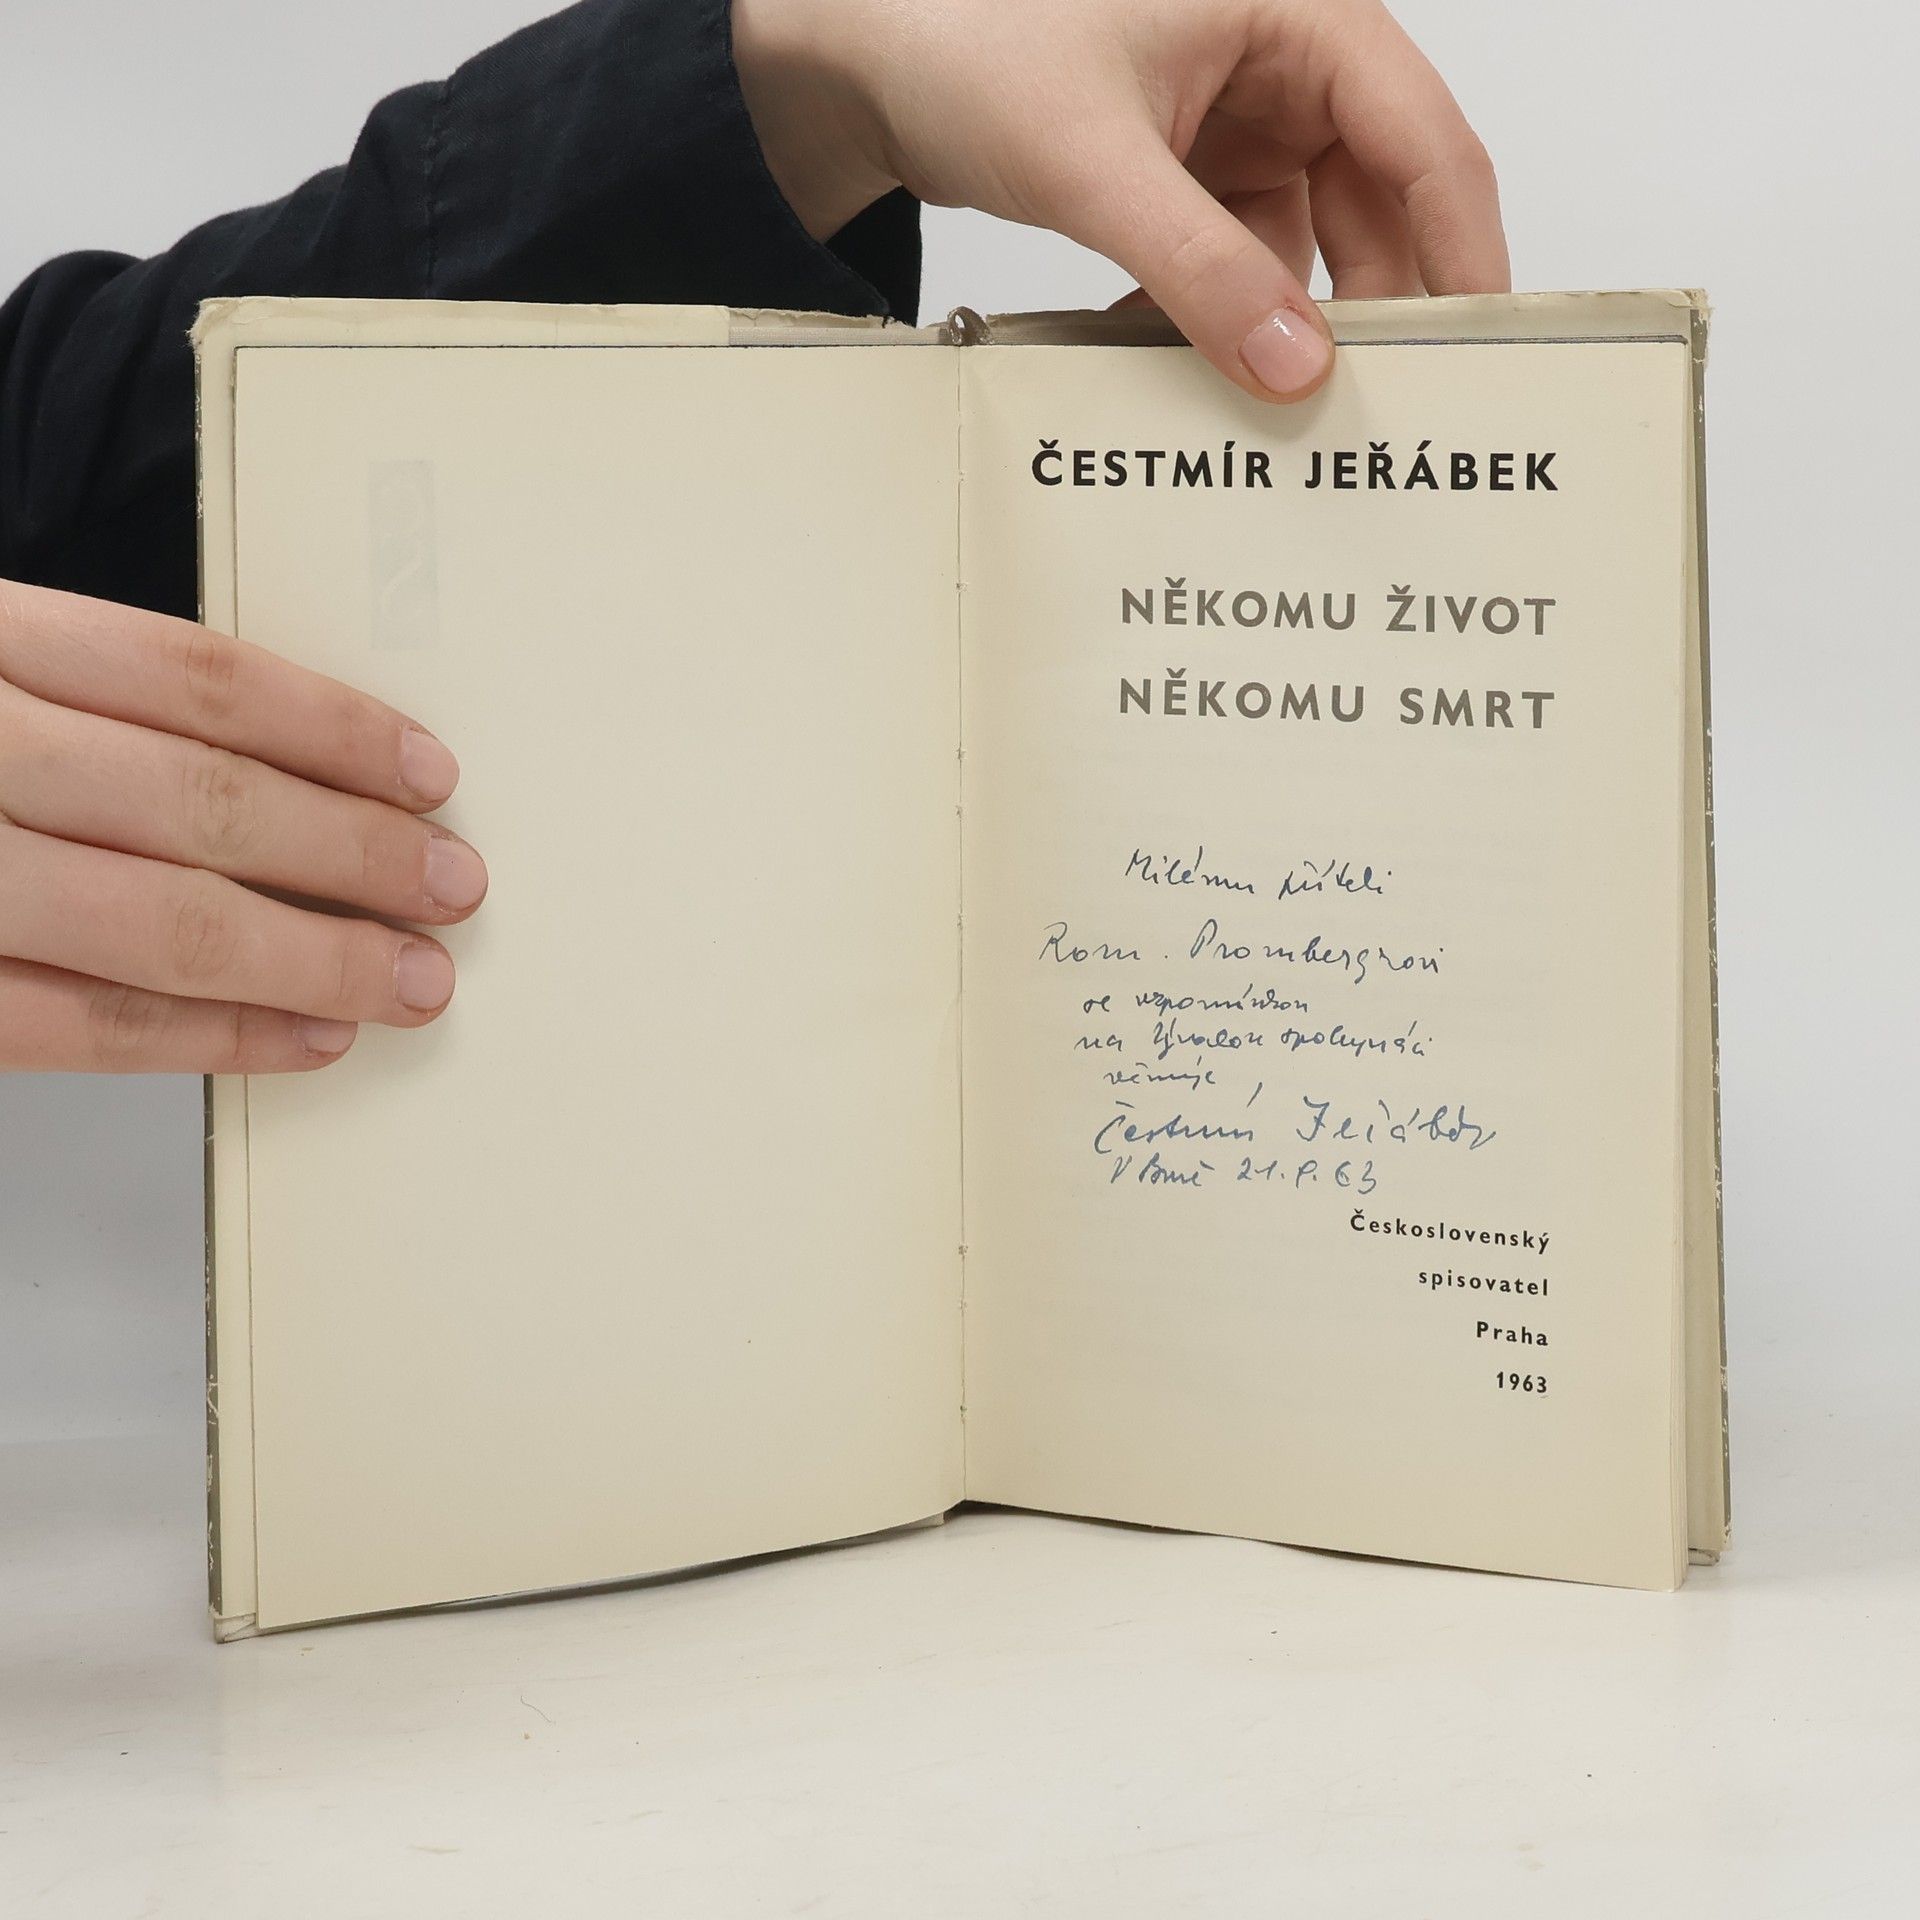 ČESTMÍR JEŘÁBEK
NĚKOMU ŽIVOT
NĚKOMU SMRT
Milému příteli
Rom. Prombergrovi
se vzpomínkou
na bývalou spolupráci
věnuje
Čestmír Jeřábek
V Brně 21.8.63
Československý
spisovatel
Praha
1963